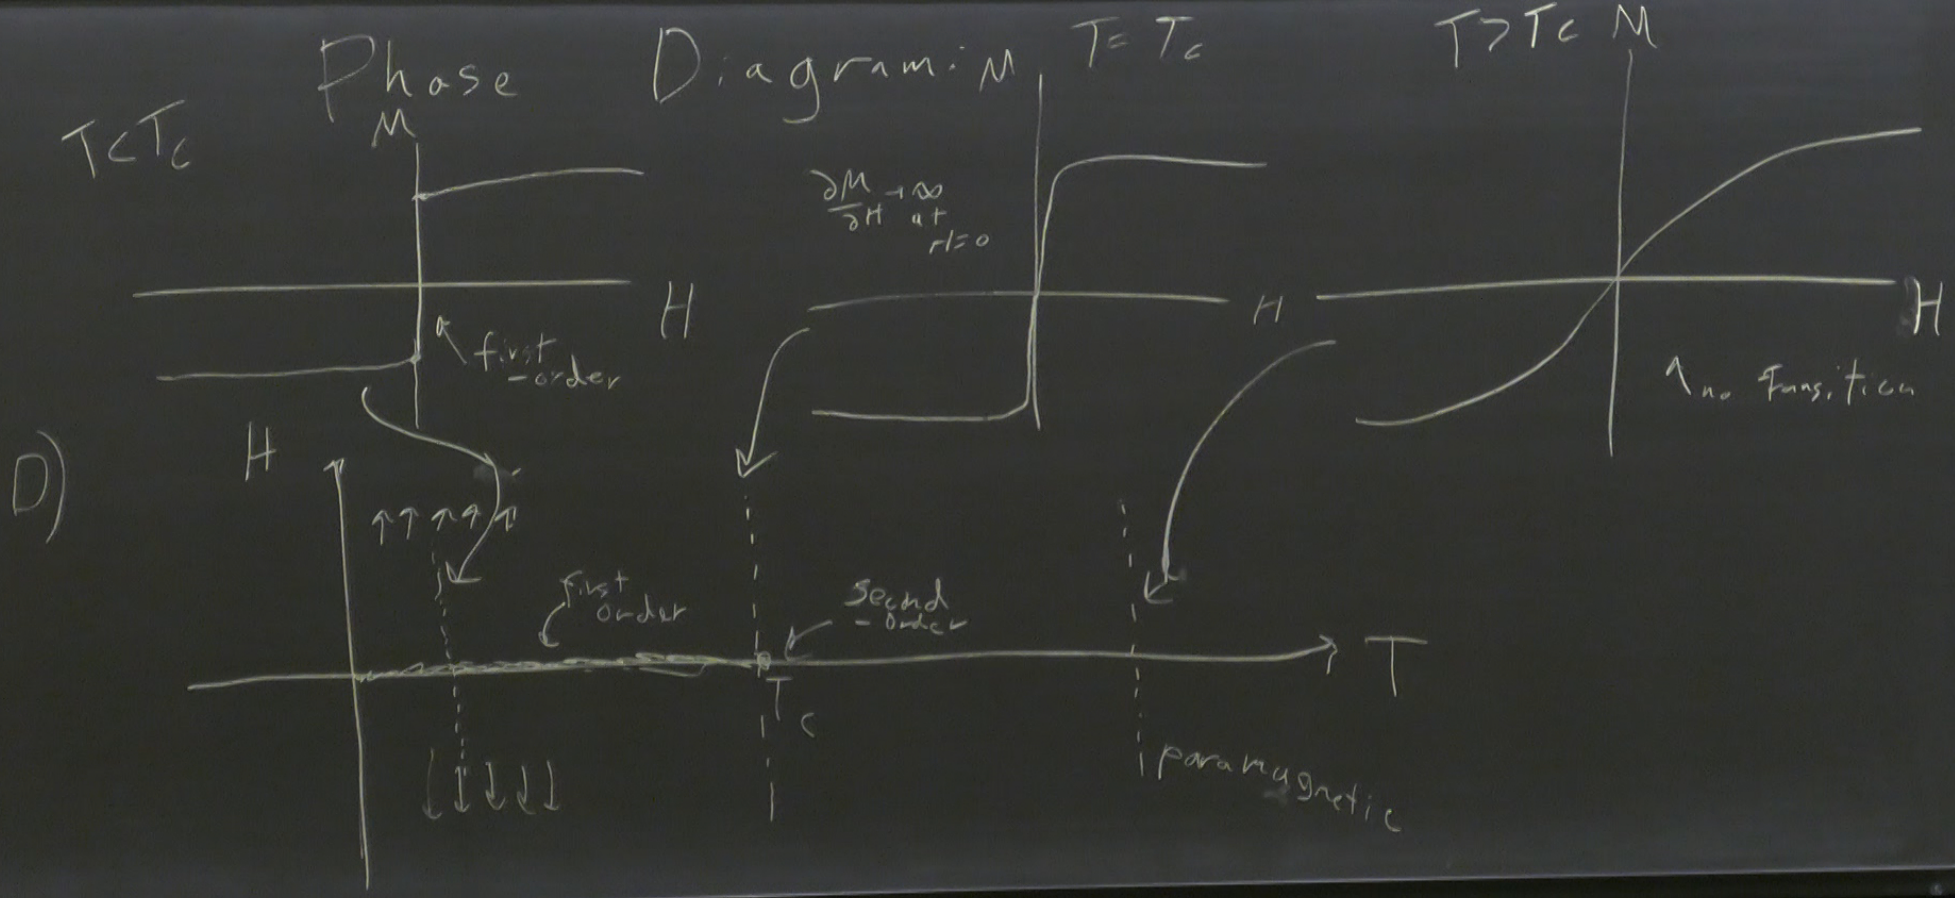 Phase Diagram:
T<Tc
M
H
first
-order
M
T=Tc
∂M/∂H → ∞
at
H=0
H
T>Tc
M
H
no Transition
D)
H
↑↑↑↑↑
first
order
second
-order
T
Tc
↓↓↓↓↓
paramagnetic